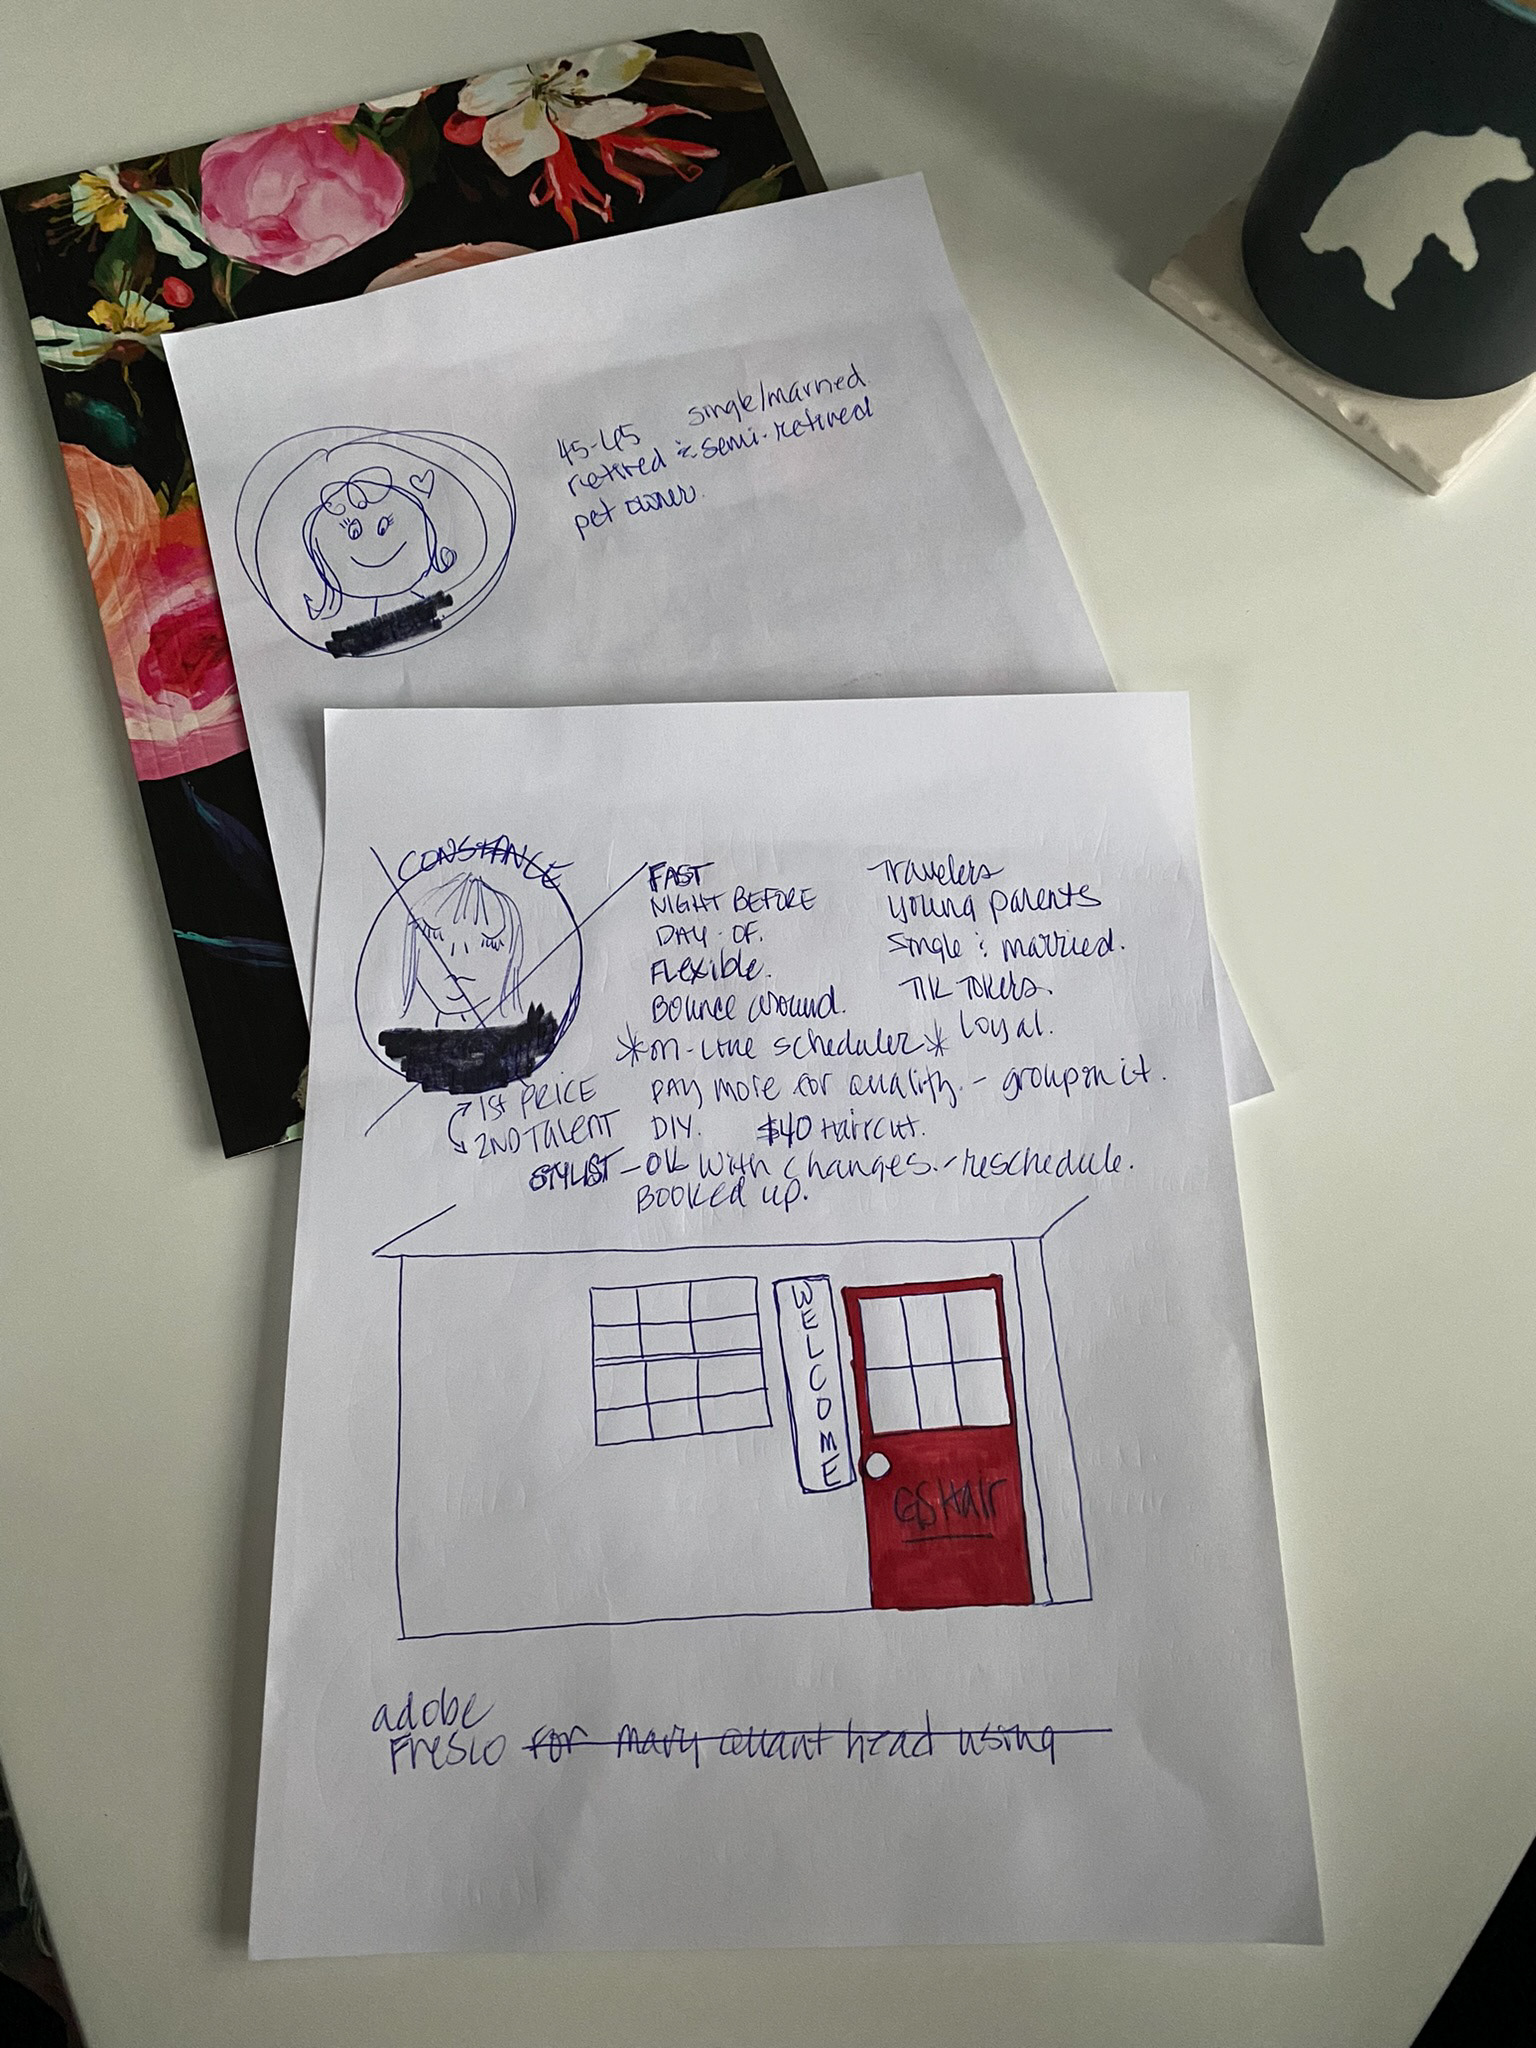 45-65 single/married
retired & semi-retired
pet owner.
CONSTANCE
FAST
NIGHT BEFORE
DAY-OF.
Flexible.
Bounce around.
*on-line scheduler*
Pay more for quality. - groupon it.
DIY. $40 Haircut.
Travelers
young parents
Single & married.
TIK TOKers.
Loyal.
1st PRICE
2ND Talent
STYLIST - OK with changes. - reschedule.
Booked up.
WELCOME
GSHair
adobe
Fresco for mary Quant head using